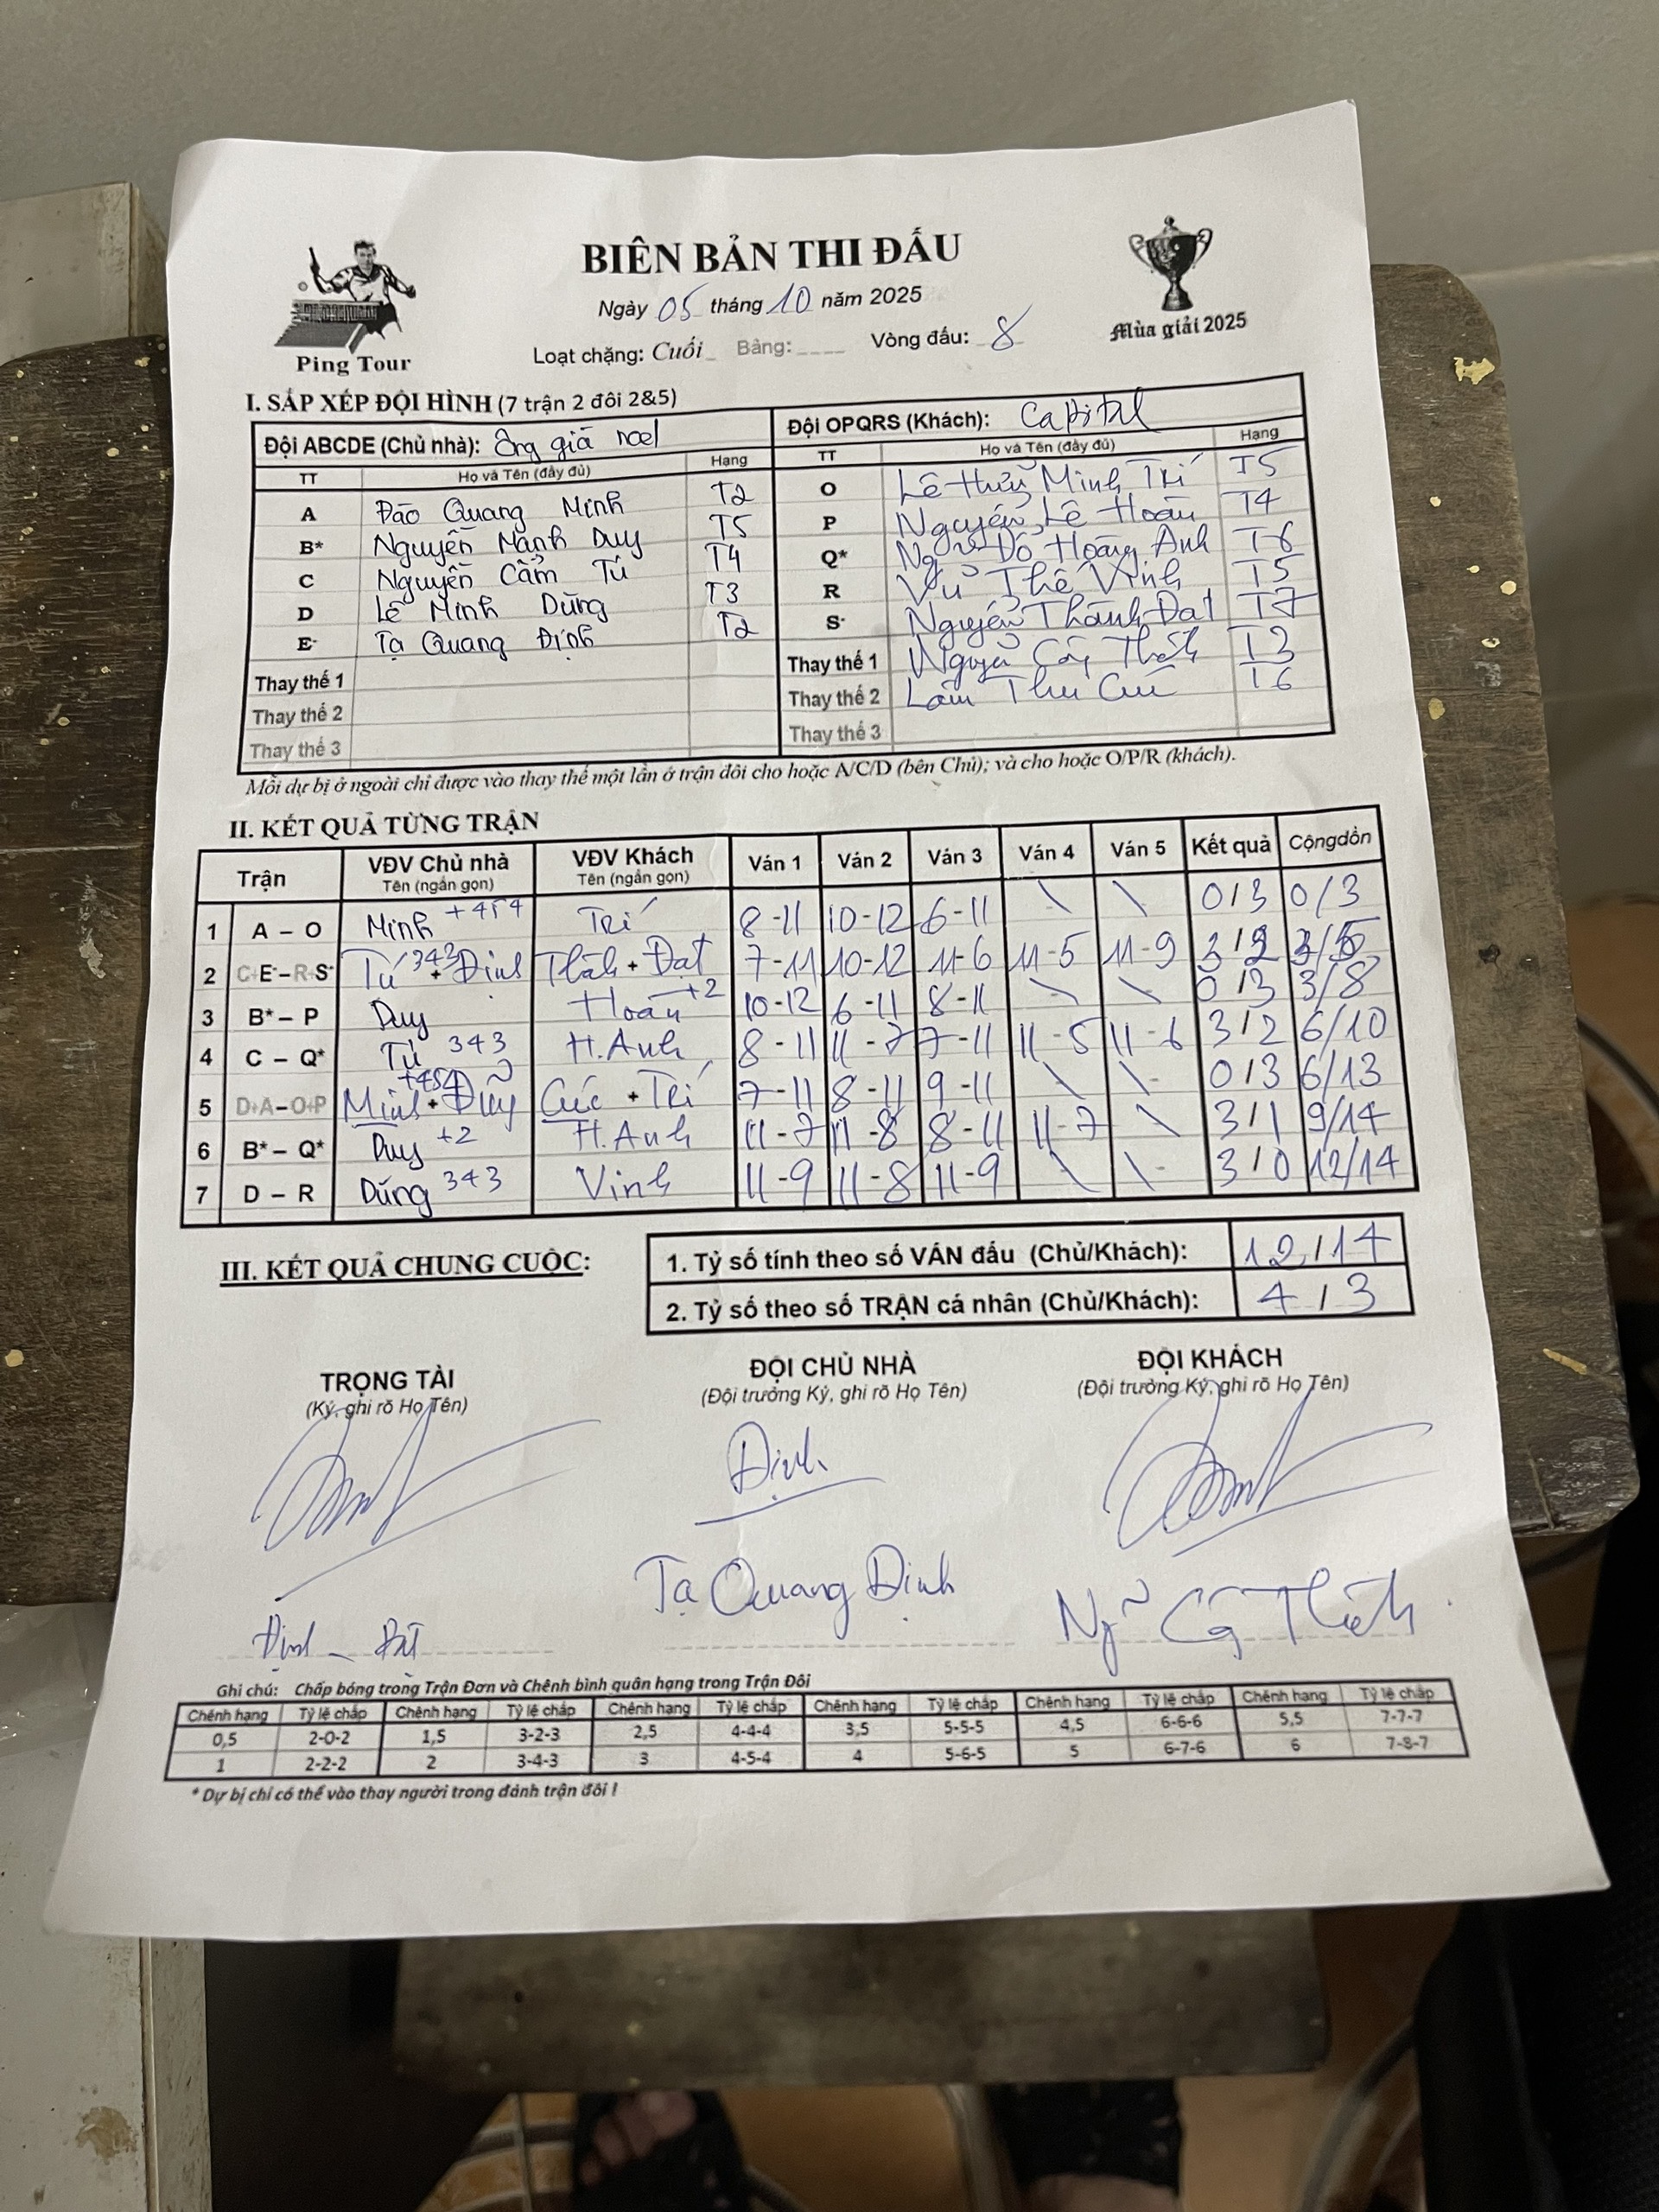 BIÊN BẢN THI ĐẤU
Ngày 05 tháng 10 năm 2025
Loạt chặng: Cuối Bảng: ____ Vòng đấu: 8
Ping Tour
Mùa giải 2025
I. SẮP XẾP ĐỘI HÌNH (7 trận 2 đôi 2&5)
Đội ABCDE (Chủ nhà): Ông già noel Đội OPQRS (Khách): Capital
TT Họ và Tên (đầy đủ) Hạng TT Họ và Tên (đầy đủ) Hạng
A Đào Quang Minh T2 O Lê Hữu Minh Trí T5
B* Nguyễn Mạnh Duy T5 P Nguyễn Lê Hoàn T4
C Nguyễn Cẩm Tú T4 Q* Ng~ Đỗ Hoàng Anh T6
D Lê Minh Dũng T3 R Vũ Thế Vinh T5
E- Tạ Quang Định T2 S- Nguyễn Thành Đạt T7
Thay thế 1 Thay thế 1 T3
Thay thế 2 Thay thế 2 Lâm Thu Cúc T6
Thay thế 3 Thay thế 3
Mỗi dự bị ở ngoài chỉ được vào thay thế một lần ở trận đôi cho hoặc A/C/D (bên Chủ); và cho hoặc O/P/R (khách).
II. KẾT QUẢ TỪNG TRẬN
Trận VĐV Chủ nhà VĐV Khách Ván 1 Ván 2 Ván 3 Ván 4 Ván 5 Kết quả Cộng dồn
Tên (ngắn gọn) Tên (ngắn gọn)
1 A – O Minh +454 Trí 8-11 10-12 6-11 \ \ 0/3 0/3
2 C+E-–R+S- Tú 343 + Định Thành + Đạt 7-11 10-12 11-6 11-5 11-9 3/2 3/5
3 B* – P Duy Hoàn +2 10-12 6-11 8-11 \ \ 0/3 3/8
4 C – Q* Tú 343 H.Anh 8-11 11-7 7-11 11-5 11-6 3/2 6/10
5 D+A–O+P Minh + Dũng +454 Cúc + Trí 7-11 8-11 9-11 \ \ 0/3 6/13
6 B* – Q* Duy +2 H.Anh 11-7 11-8 8-11 11-7 \ 3/1 9/14
7 D – R Dũng 343 Vinh 11-9 11-8 11-9 \ \ 3/0 12/14
III. KẾT QUẢ CHUNG CUỘC:
1. Tỷ số tính theo số VÁN đấu (Chủ/Khách): 12/14
2. Tỷ số theo số TRẬN cá nhân (Chủ/Khách): 4/3
TRỌNG TÀI ĐỘI CHỦ NHÀ ĐỘI KHÁCH
(Ký, ghi rõ Họ Tên) (Đội trưởng Ký, ghi rõ Họ Tên) (Đội trưởng Ký, ghi rõ Họ Tên)
Định
Tạ Quang Định
Định - Đạt
Ghi chú: Chấp bóng trong Trận Đơn và Chênh bình quân hạng trong Trận Đôi
Chênh hạng Tỷ lệ chấp Chênh hạng Tỷ lệ chấp Chênh hạng Tỷ lệ chấp Chênh hạng Tỷ lệ chấp Chênh hạng Tỷ lệ chấp Chênh hạng Tỷ lệ chấp
0,5 2-0-2 1,5 3-2-3 2,5 4-4-4 3,5 5-5-5 4,5 6-6-6 5,5 7-7-7
1 2-2-2 2 3-4-3 3 4-5-4 4 5-6-5 5 6-7-6 6 7-8-7
* Dự bị chỉ có thể vào thay người trong đánh trận đôi !